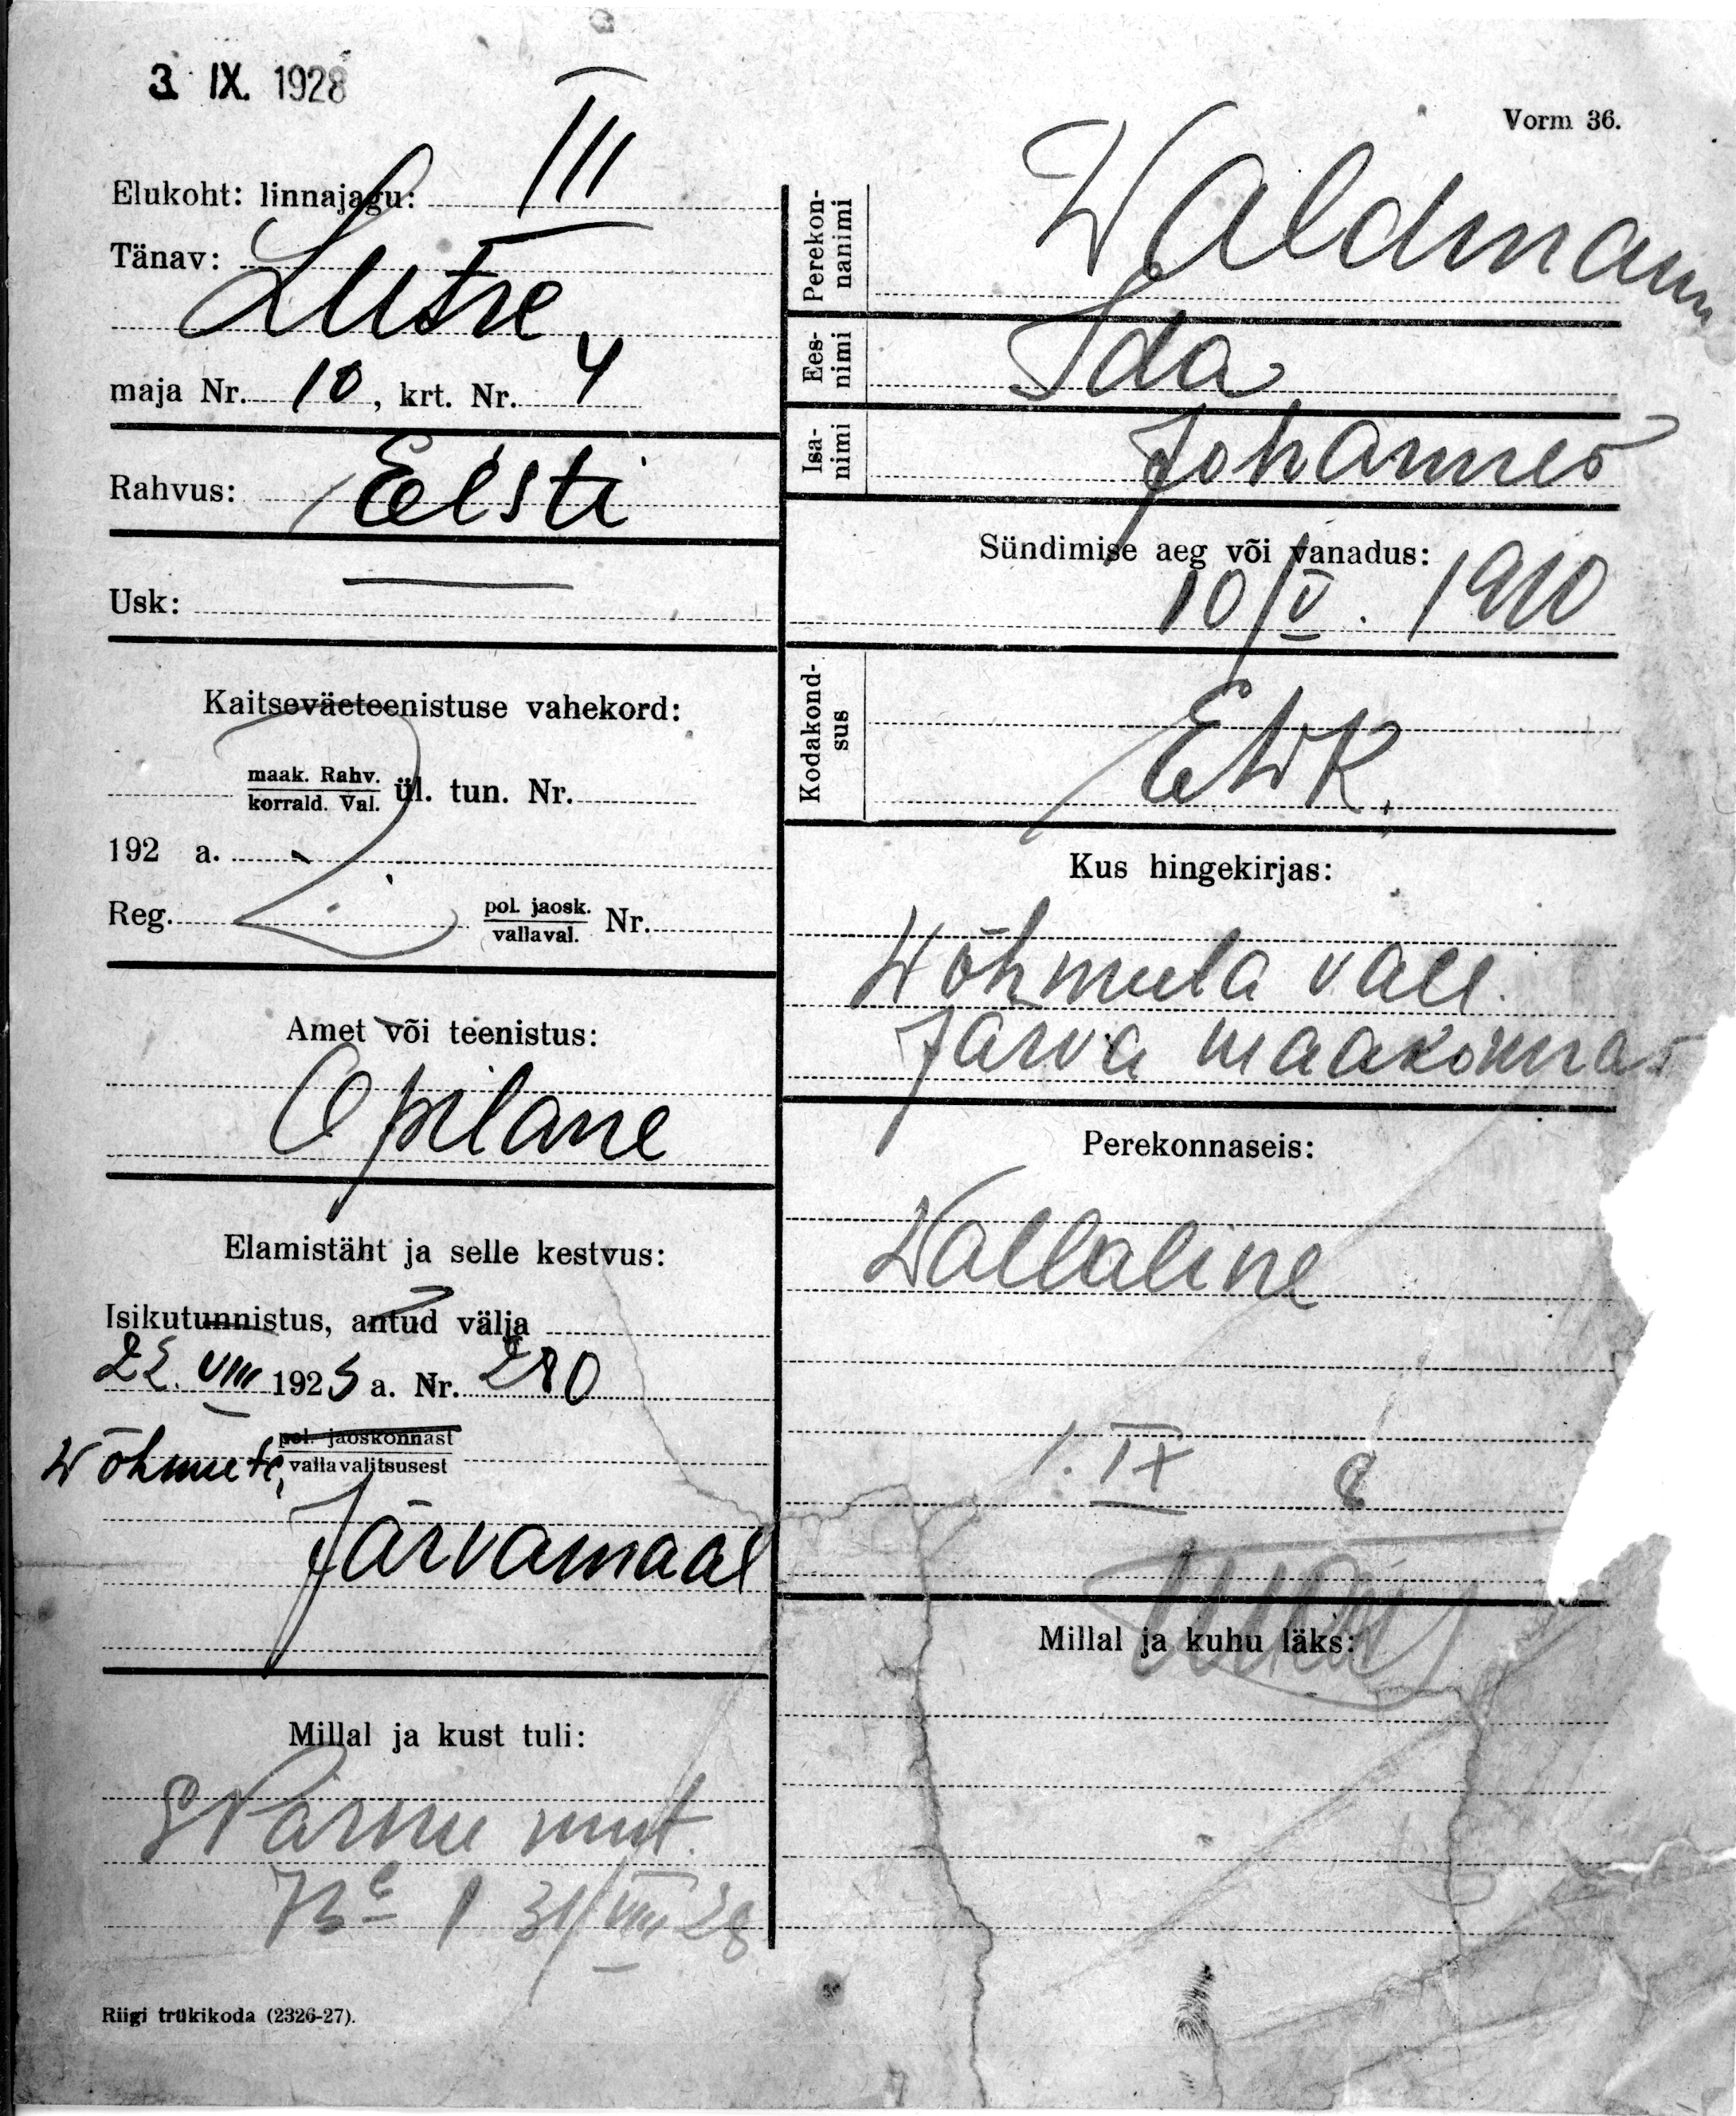 3. IX. 1928
Vorm 36.
Elukoht: linnajagu: III
Tänav: Lutre
maja Nr. 10, krt. Nr. 4
Rahvus: Eesti
Usk: —
Kaitseväeteenistuse vahekord:
maak. Rahv.
korrald. Val. ül. tun. Nr.
192 a.
Reg. pol. jaosk. Nr.
vallaval.
Amet või teenistus:
Õpilane
Elamistäht ja selle kestvus:
Isikutunnistus, antud välja
22. VIII 1925 a. Nr. 280
pol. jaoskonnast
Wõhmuta, vallavalitsusest
Järvamaal
Millal ja kust tuli:
Pärnu mnt.
No 1 31/VIII 28
Riigi trükikoda (2326-27).
Perekon-
nanimi Waldmann
Ees-
nimi Ida
Isa-
nimi Johannes
Sündimise aeg või vanadus:
10/V. 1910
Kodakond-
sus EWK.
Kus hingekirjas:
Wõhmuta vall.
Järva maakonnas
Perekonnaseis:
Wallaline
1. IX 8
Millal ja kuhu läks: